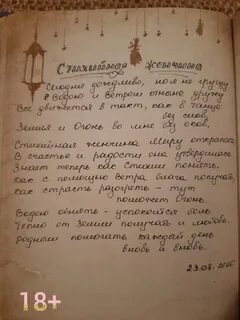 Стихийная женщина
Сегодня дождливо, но я не грущу
С Водою и Ветром отныне дружу
Все движется в такт, как в танце
без слов,
Земля и Огонь во мне без оков.
Стихийная женщина Миру открылась
В счастье и радости она утвердилась
Знает теперь как Стихии понять.
Как с помощью ветра блага получать,
Как страсть разогреть - тут
поможет Огонь.
Водою обнять - успокоится боль
Тепло от Земли получать и любовь.
Родным помогать каждый день
вновь и вновь.
23.08.2020
18+